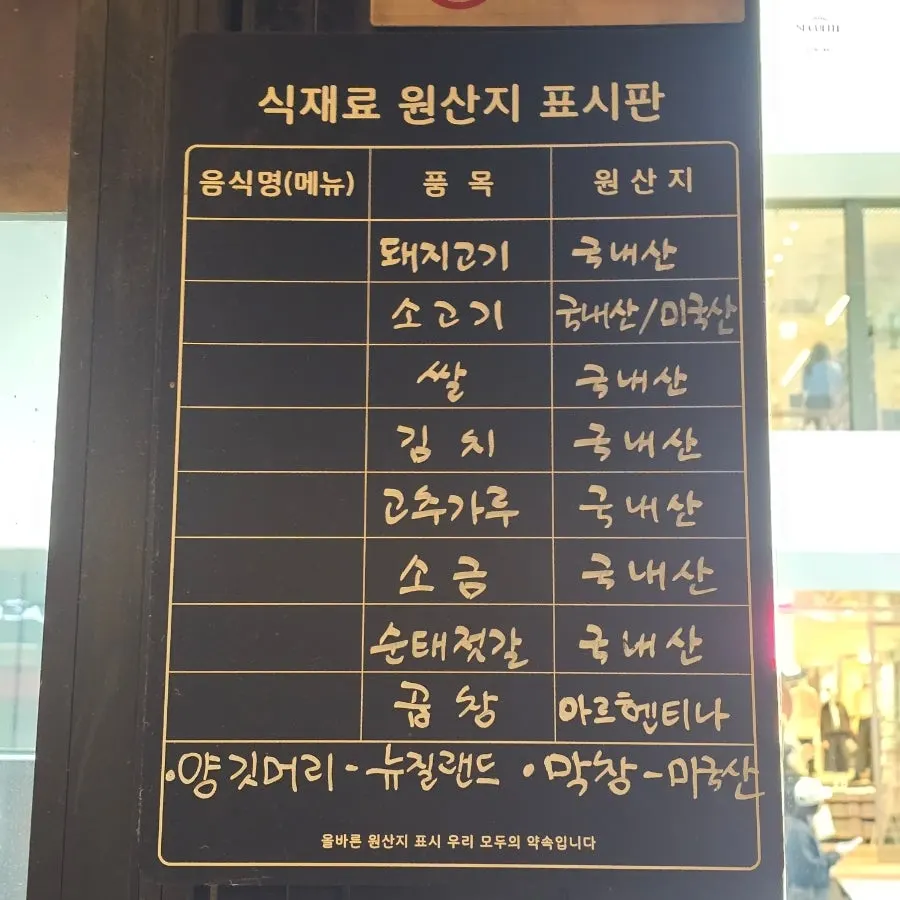 식재료 원산지 표시판
음식명(메뉴) 품 목 원 산 지
돼지고기 국내산
소고기 국내산/미국산
쌀 국내산
김 치 국내산
고추가루 국내산
소 금 국내산
순태젓갈 국내산
곱 창 아르헨티나
·양깃머리-뉴질랜드 ·막창-미국산
올바른 원산지 표시 우리 모두의 약속입니다